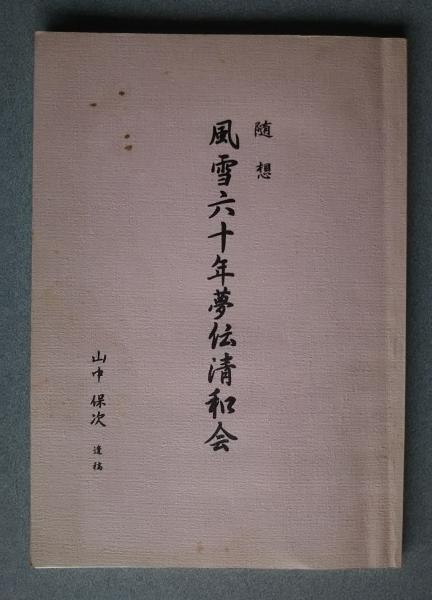 随想
風雪六十年夢伝清和会
山中保次 遺稿